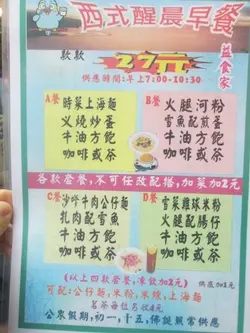 西式醒晨早餐
益食家
款款
27元
供應時間:早上7:00-10:30
A餐
時菜上海麵
叉燒炒蛋
牛油方飽
咖啡或茶
B餐
火腿河粉
雪魚配煎蛋
牛油方飽
咖啡或茶
各款套餐,不可任改配搭,加菜加2元
C餐
沙嗲牛肉公仔麵
扎肉配雪魚
牛油方飽
咖啡或茶
D餐
雪菜雞球米粉
火腿配腸仔
牛油方飽
咖啡或茶
(以上四款套餐,凍飲加2元)
可配:公仔麵,米粉,米線,上海麵
茗茶每位另收4元
公眾假期,初一,十五,佛誕照常供應